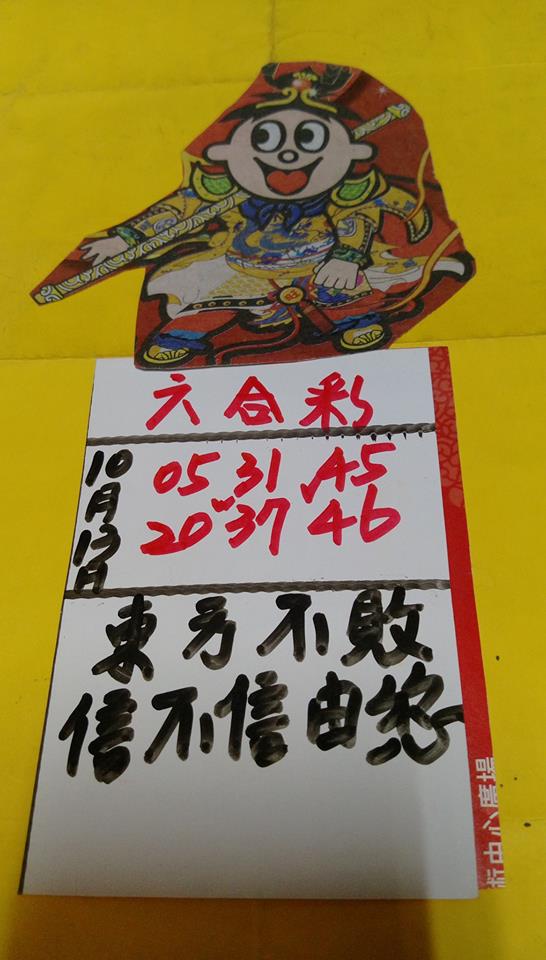 六合彩
10月13日
05 31 45
20 37 46
東方不敗
信不信由您
衍中心廣場